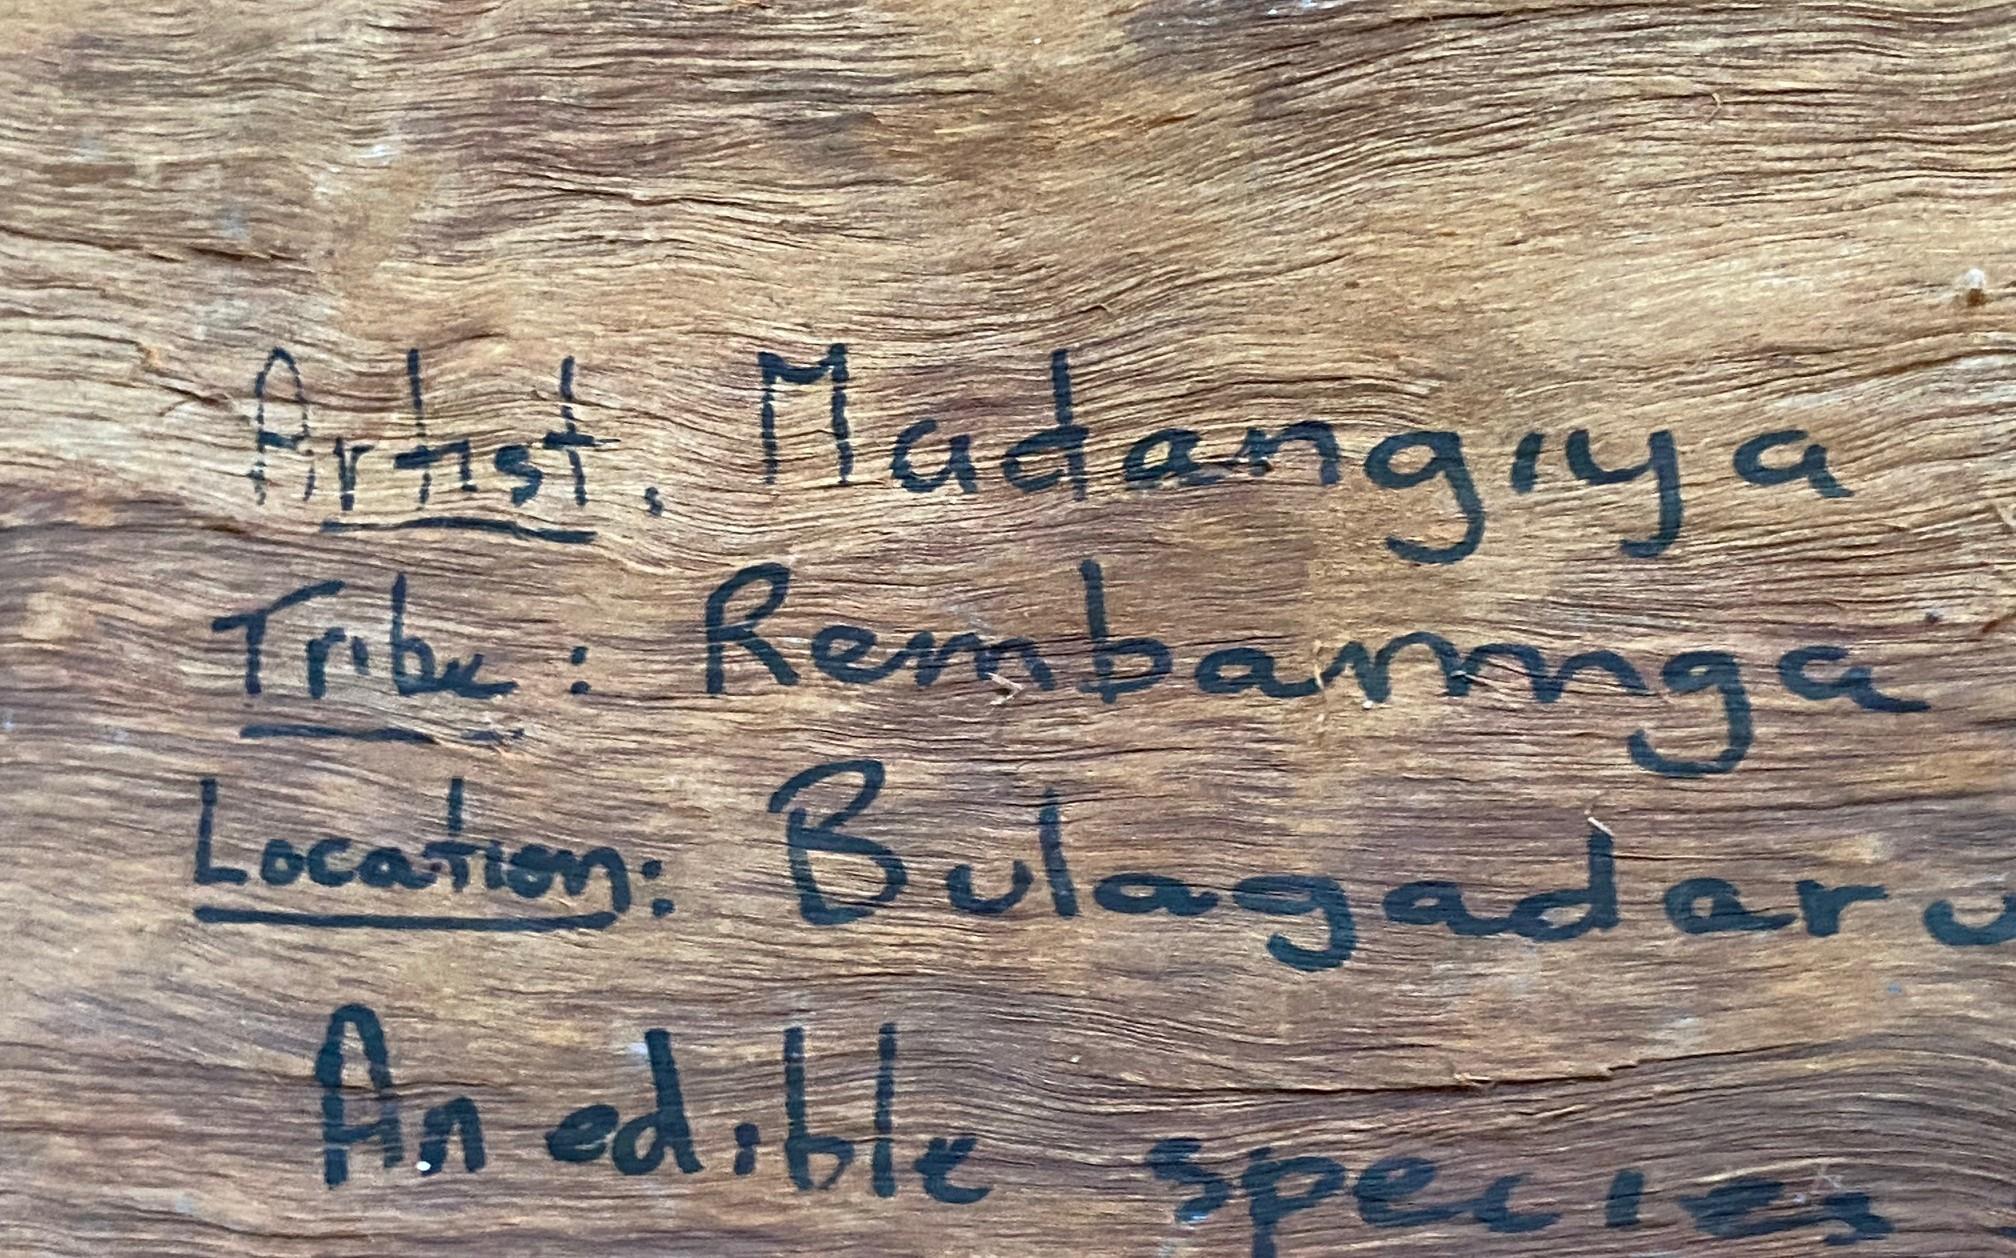 Artist. Madangiya
Tribe: Rembarrnga
Location: Bulagadaru
An edible species